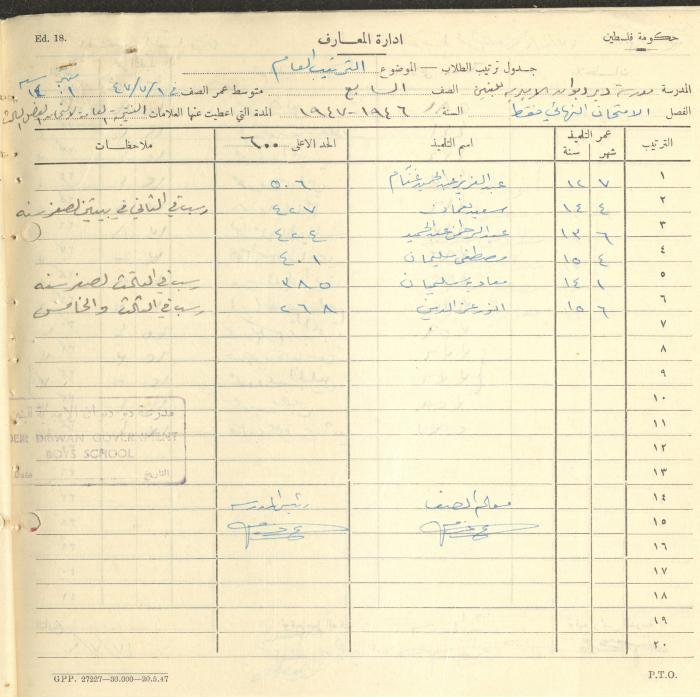 Ed. 18.
ادارة المعـارف
حكـومة فلسطين
جـدول ترتيب الطلاب — الموضوع الترتيب العام
المدرسة مدرسة دير ديوان الاميرية للبنين الصف السابع متوسط عمر الصف في ١/٧/٤٧ شهر ١ سنة ١٤
الفصل الامتحان النهائي فقط السنة ١٩٤٦-١٩٤٧ المدة التي اعطيت عنها العلامات
الترتيب عمر التلميذ شهر سنة اسم التلميذ الحد الاعلى ٦٠٠ ملاحظـات
١ ٧ ١٢ عبد العزيز عبد الحميد غنام ٥٠٦
٢ ٤ ١٤ سعيد نعمان ٤٢٧ رسب في الثاني في بيتين لصغر سنه
٣ ٦ ١٣ عبد الرحمن عبد الحميد ٤٢٤
٤ ٤ ١٥ مصطفى سليمان ٤٠١
٥ ١ ١٤ معاوية سليمان ٣٨٥ رسب في الثالث لصغر سنه
٦ ٦ ١٥ انور عز الدين ٢٦٨ رسب في الثالث والخامس
٧
٨
٩
١٠
١١
١٢
١٣
١٤ معلم الصف رئيس المدرسة
١٥
١٦
١٧
١٨
١٩
٢٠
مدرسة دير ديوان الاميرية
DEIR DIBWAN GOVERNMENT
BOYS SCHOOL
Date التاريخ
GPP. 27227—30.000—20.5.47
P.T.O.